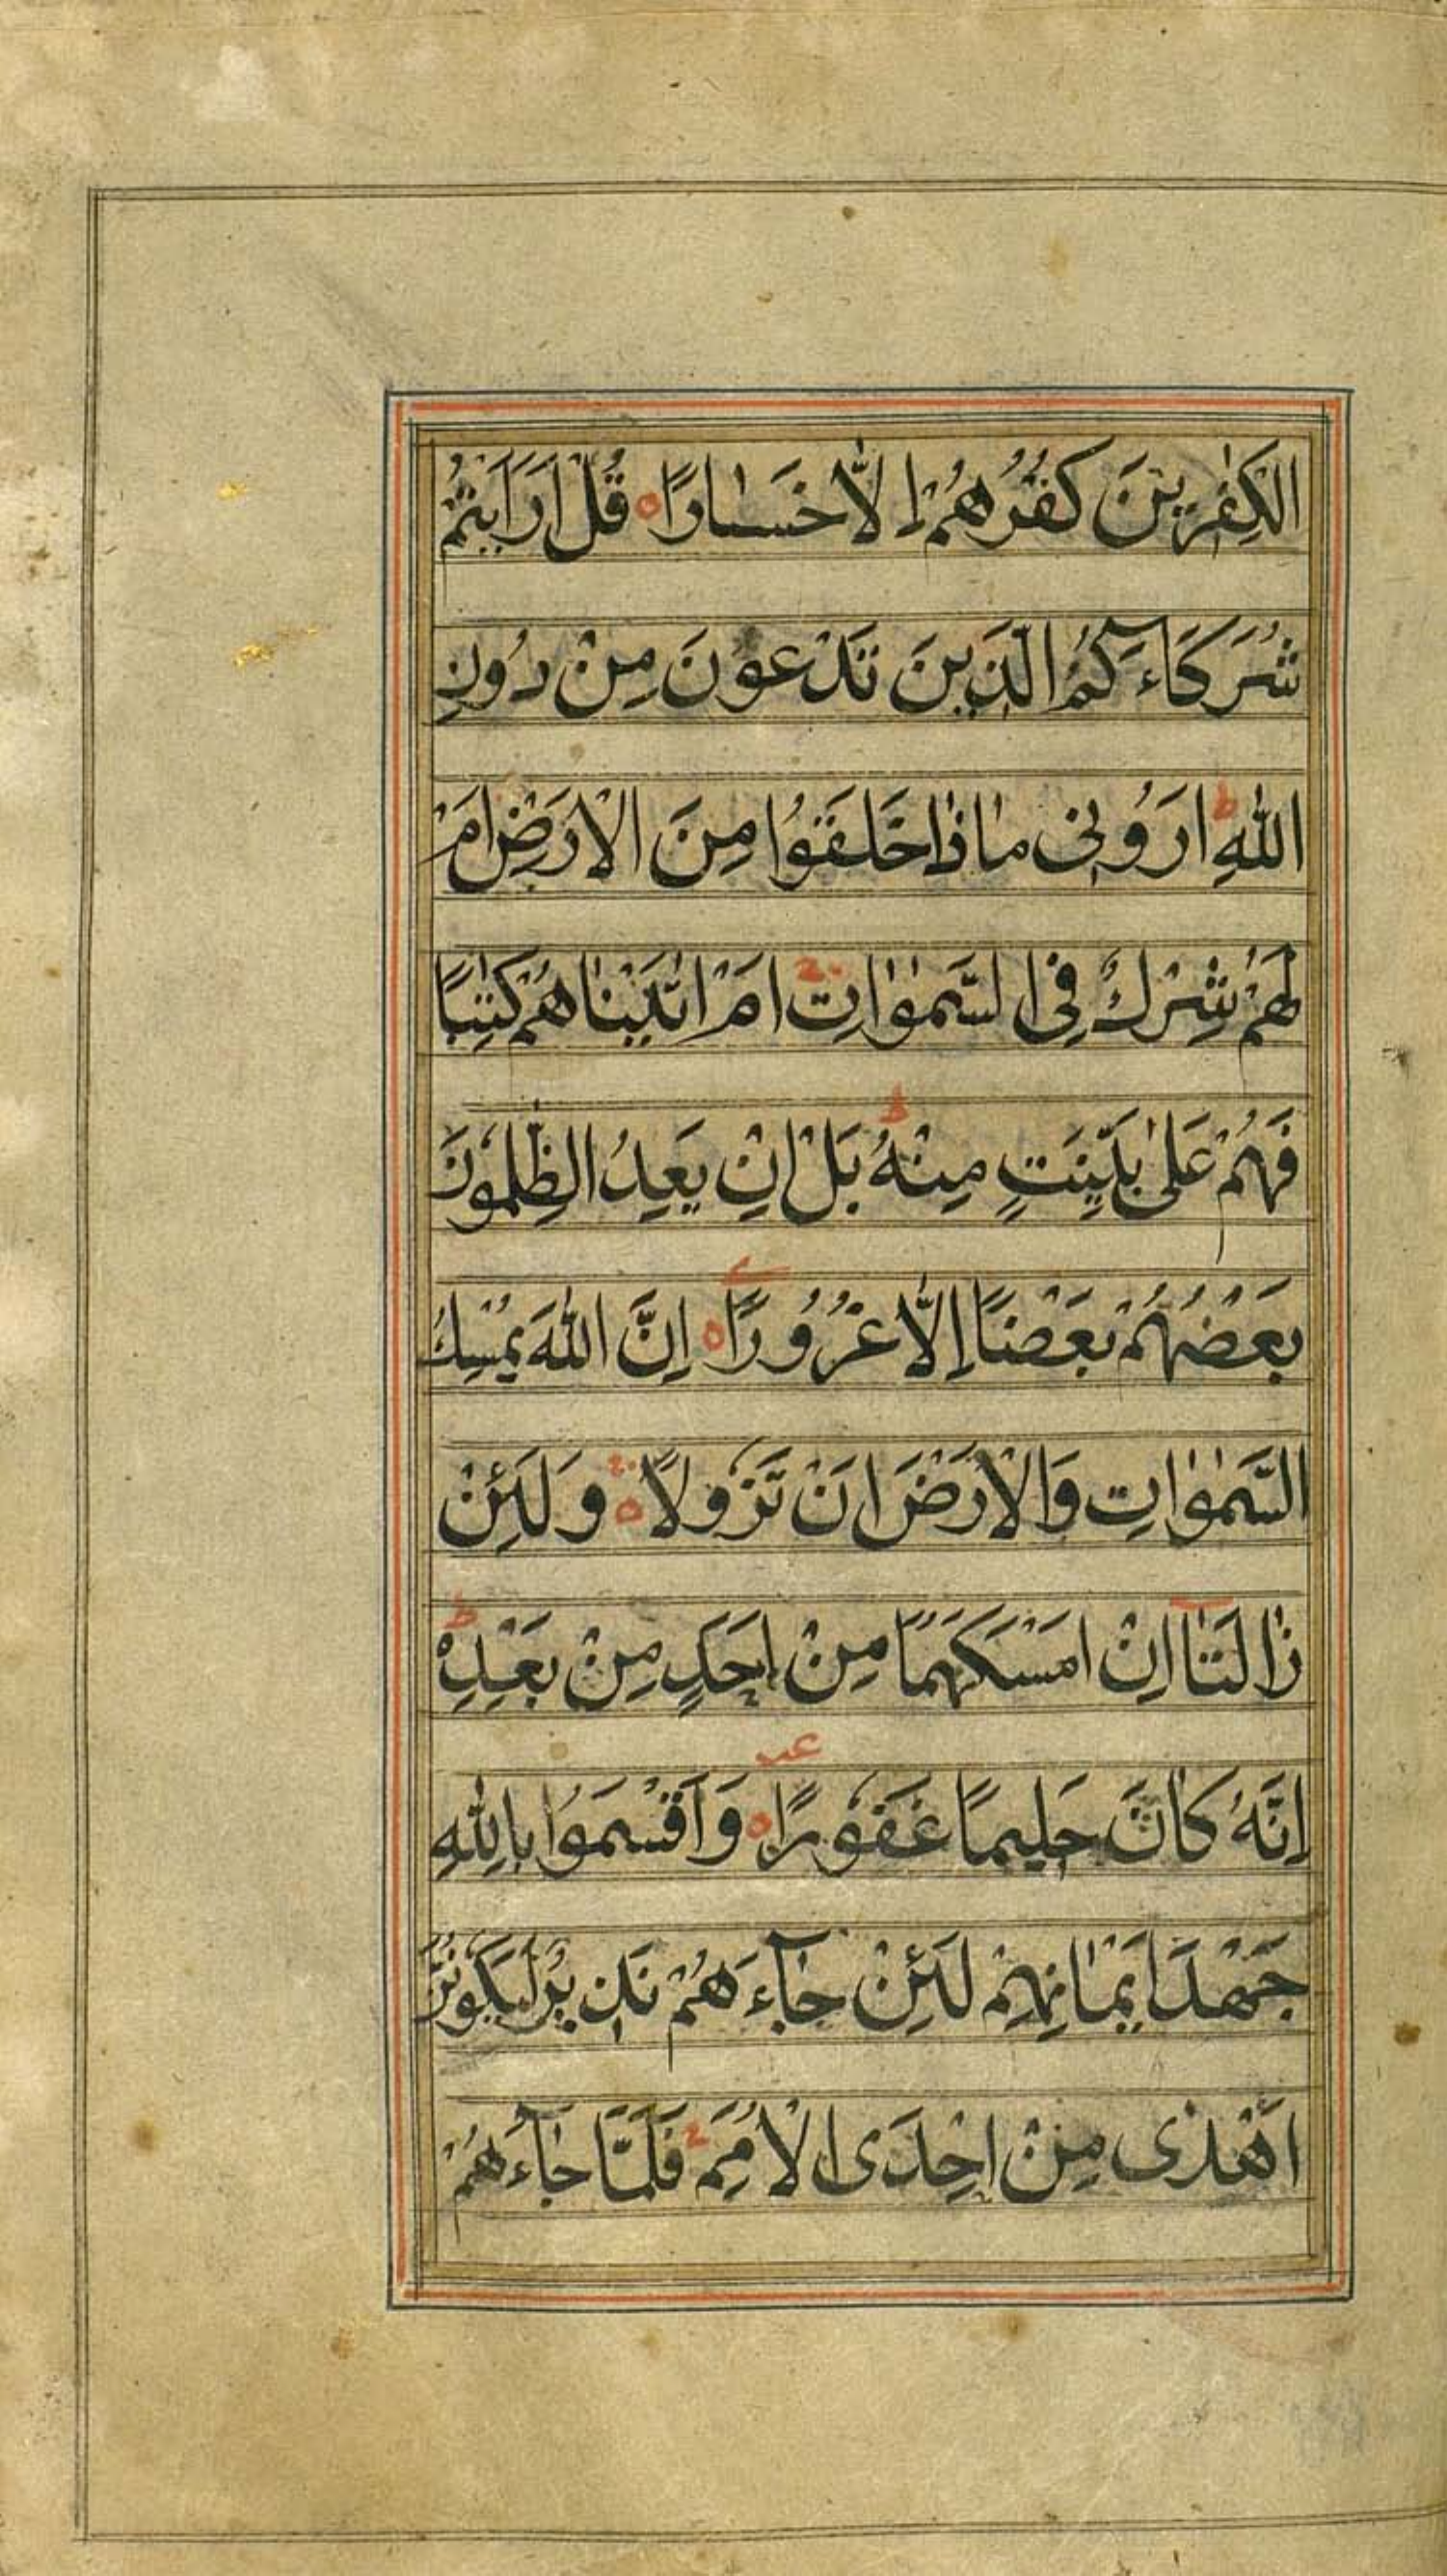 الكٰفرِينَ كُفْرُهُمْ اِلَّا خَسٰارًا ه قُلْ اَرَاَيْتُمْ
شُرَكَآءَكُمُ الَّذِينَ تَدْعُونَ مِنْ دُونِ
اللّٰهِ ط اَرُونِى مٰاذٰا خَلَقُوا مِنَ الْاَرْضِ اَمْ
لَهُمْ شِرْكٌ فِى السَّمٰوٰاتِ ج اَمْ اٰتَيْنٰاهُمْ كِتٰبًا
فَهُمْ عَلىٰ بَيِّنَتٍ مِنْهُ ط بَلْ اِنْ يَعِدُ الظّٰلِمُونَ
بَعْضُهُمْ بَعْضًا اِلَّا غُرُورًا ه اِنَّ اللّٰهَ يُمْسِكُ
السَّمٰوٰاتِ وَالْاَرْضَ اَنْ تَزُولَا ه ج وَلَئِنْ
زٰالَتٰا اِنْ اَمْسَكَهُمٰا مِنْ اَحَدٍ مِنْ بَعْدِهِ ط
اِنَّهُ كٰانَ حَلِيمًا غَفُورًا ه عب وَاَقْسَمُوا بِاللّٰهِ
جَهْدَ اَيْمٰانِهِمْ لَئِنْ جٰآءَهُمْ نَذِيرٌ لَيَكُونُنَّ
اَهْدٰى مِنْ اِحْدَى الْاُمَمِ ج فَلَمَّا جٰآءَهُمْ